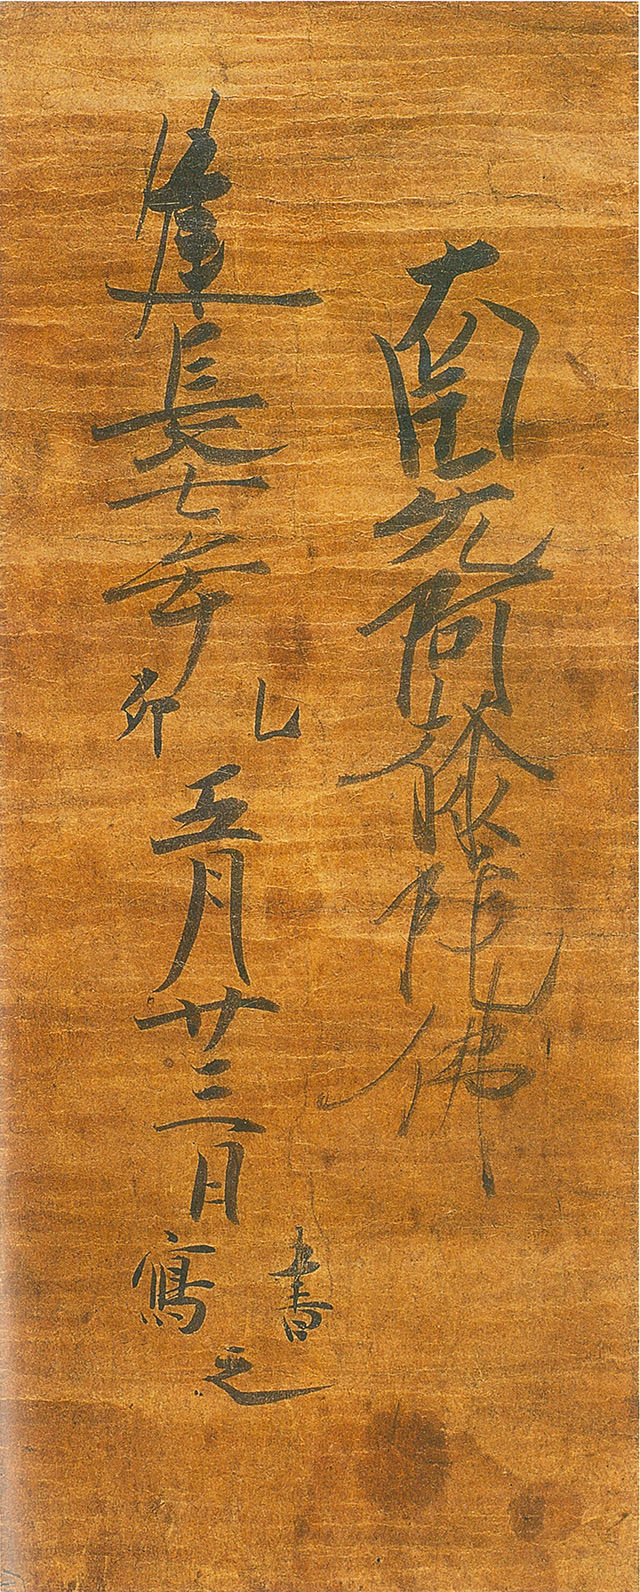 南无阿弥陀佛
建長七年乙卯五月廿三日書寫之